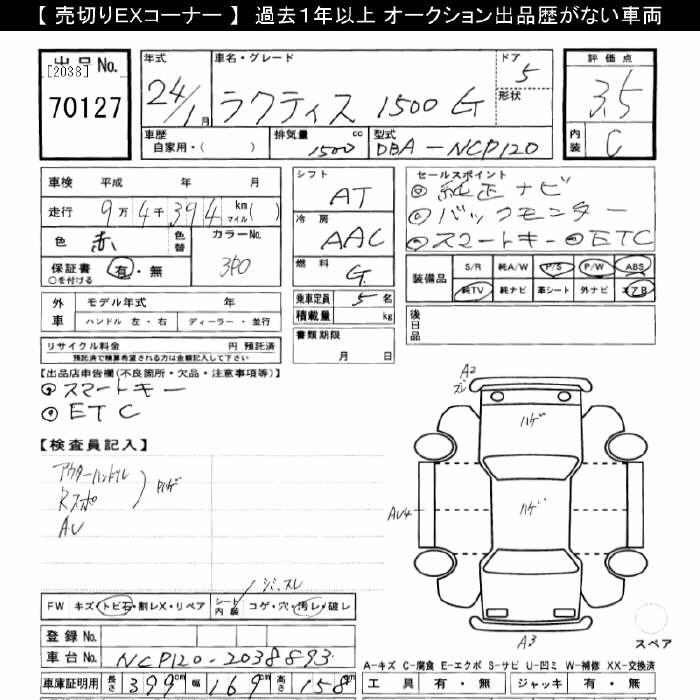 【 売切りEXコーナー 】 過去1年以上 オークション出品歴がない車両
出品No.
[2038]
70127
年式
24/1月
車名・グレード
ラクティス 1500 G
ドア
5
形状
評価点
3.5
内装
C
車歴
自家用・( )
排気量
1500 cc
型式
DBA-NCP120
車検 平成 年 月
走行 9万4千394 km マイル( )
色 赤
色替
カラーNo.
3P0
保証書 有・無
○を付ける
シフト
AT
冷房
AAC
燃料
G
乗車定員 5名
積載量 kg
書類期限
月 日
セールスポイント
◎純正ナビ
◎バックモニター
◎スマートキー ◎ETC
装備品
S/R 純A/W P/S P/W ABS
純TV 純ナビ 革シート 外ナビ エアB
後日品
外車
モデル年式 年
ハンドル 左・右 ディーラー・並行
リサイクル料金 円 預託済
預託済で精算希望される方は金額記入して下さい
【出品店申告欄(不良箇所・欠品・注意事項等)】
◎スマートキー
◎ETC
【検査員記入】
アウターハンドル
Rスポ
AU
ハゲ
シミ、スレ
A2
ズレ
ハゲ
ハゲ
AU4
A3
スペア
FW キズ・トビ石・割レX・リペア
シート内装 コゲ・穴・汚レ・破レ
登録No.
車台No. NCP120-2038893
車庫証明用 長さ 399cm 幅 169cm 高さ 158cm
A-キズ C-腐食 E-エクボ S-サビ U-凹ミ W-補修 XX-交換済
工具 有・無 ジャッキ 有・無